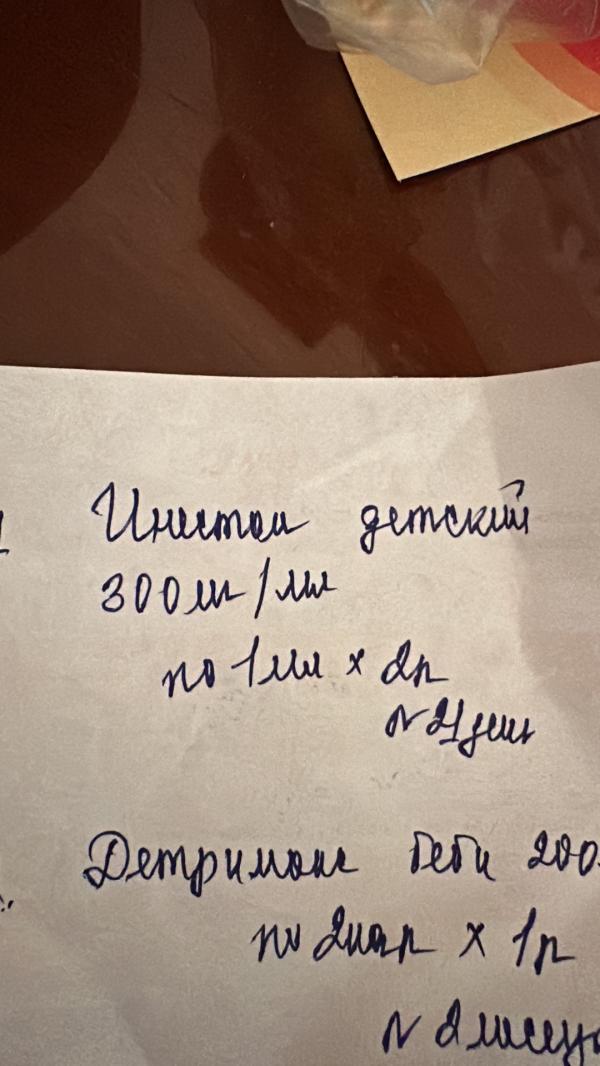 детский
300 мг/мл
по 1 мл × 2р
N 21 дни
Детримакс беби 200
по 2 кап × 1р
N 2 месяц